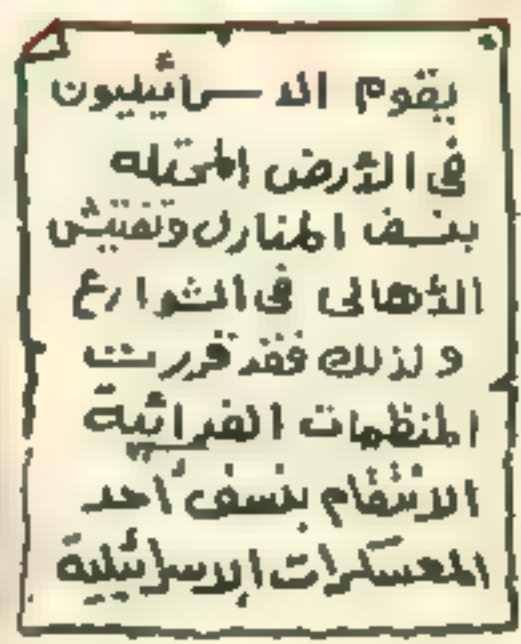 يقوم الاسرائيليون
فى الأرض المحتله
بنسف المنازل وتفتيش
الأهالى فى الشوارع
ولذلك فقد قررت
المنظمات الفدائية
الانتقام بنسف أحد
المعسكرات الإسرائيلية